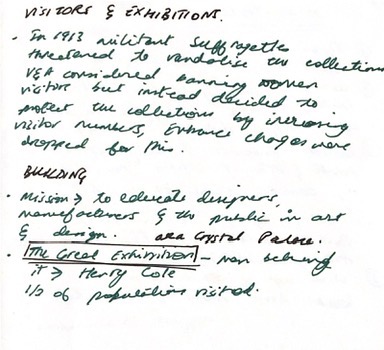 VISITORS & EXHIBITIONS.
• In 1913 militant suffragettes
threatened to vandalise the collections
V&A considered banning women
visitors but instead decided to
protect the collections by increasing
visitor numbers, Entrance charges were
dropped for this.
BUILDING
• Mission → to educate designers,
manufacturers & the public in art
& design. aka Crystal Palace.
• The Great Exhibition – man behind
it → Henry Cole
1/3 of population visited.